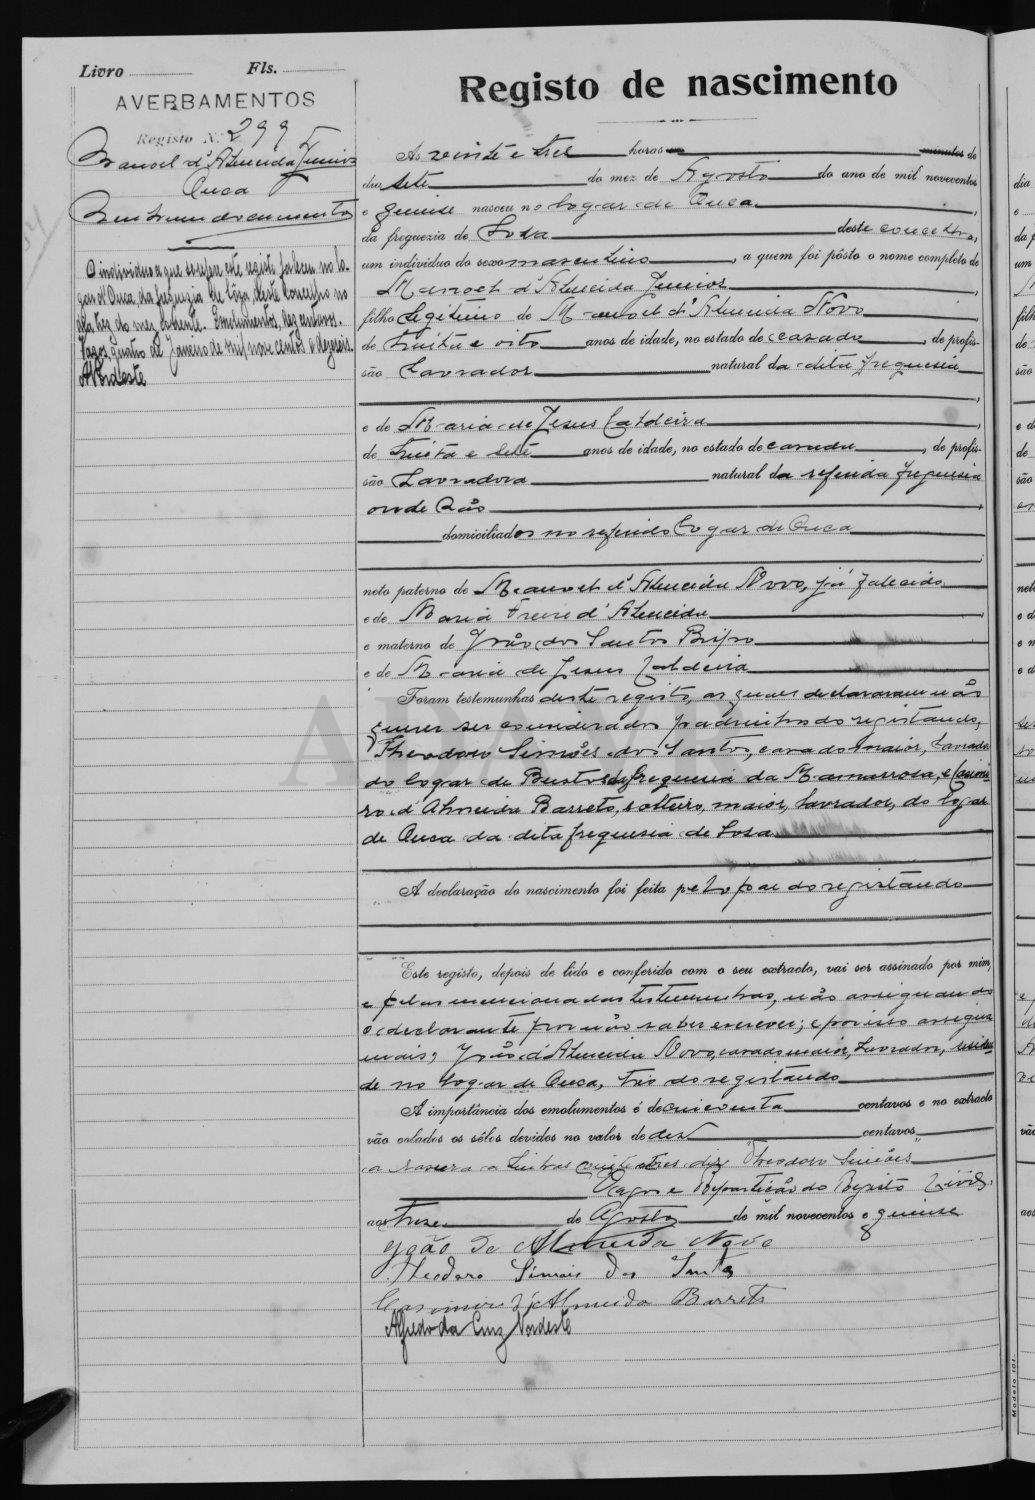 Livro Fls.
AVERBAMENTOS
Registo N.º 299
Manoel d'Almeida Junior
Ouca
Nenhum documento
O individuo a que se refere este registo faleceu no lo-
gar d'Ouca, da freguezia de Sôza, deste Concelho no
dia trez do mez corrente. Emolumentos, dez centavos.
Vagos, quatro de Janeiro de mil nove centos e dezeseis.
ANordeste
Registo de nascimento
Ás vinte e tres horas minutos do
dia sete do mez de Agosto do ano de mil novecentos
e quinse nasceu no logar de Ouca,
da freguezia de Sosa deste concelho,
um individuo do sexo masculino, a quem foi pôsto o nome completo de
Manoel d'Almeida Junior,
filho legitimo de Manoel d'Almeida Novo,
de trinta e oito anos de idade, no estado de casado, de profis-
são Lavrador natural da dita freguesia
e de Maria de Jesus Caldeira,
de trinta e sete anos de idade, no estado de casada, de profis-
são Lavradora natural da referida freguesia
onde são
domiciliados no referido logar de Ouca
neto paterno de Manoel d'Almeida Novo, já falecido
e de Maria Freire d'Almeida
e materno de João dos Santos
e de Maria de Jesus Caldeira
Foram testemunhas deste registo, as quaes declararam não
querer ser considerados padrinhos do registando,
Theodoro Simões dos Santos, casado, maior, Lavrador
do logar de Bustos da freguesia da Mamarrosa, e Casimi-
ro d'Almeida Barreto, solteiro, maior, Lavrador, do logar
de Ouca da dita freguesia de Sosa
A declaração do nascimento foi feita pelo pae do registando
Este registo, depois de lido e conferido com o seu extracto, vai ser assinado por mim,
e pelas mencionadas testemunhas, não assignando
o declarante por não saber escrever; e por isso assigna
mais, João d'Almeida Novo, casado, maior, Lavrador, residen-
te no logar de Ouca, tio do registando
A importância dos emolumentos é de cincoenta centavos e no extracto
vão colados os sêlos devidos no valor de dez centavos
a rasura a linhas vinte e tres diz "Theodoro Simões"
Vagos e Repartição do Registo Civil,
aos treze de Agosto de mil novecentos e quinse
João de Almeida Novo
Theodoro Simois dos Santos
Casimiro d'Almeida Barreto
Alfredo da Cruz Nordeste
Modelo 101.